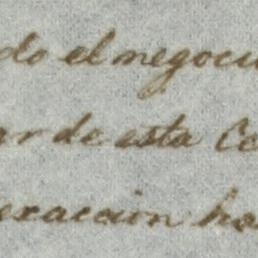 do el negoci
ar de esta Ce
exaccion ha